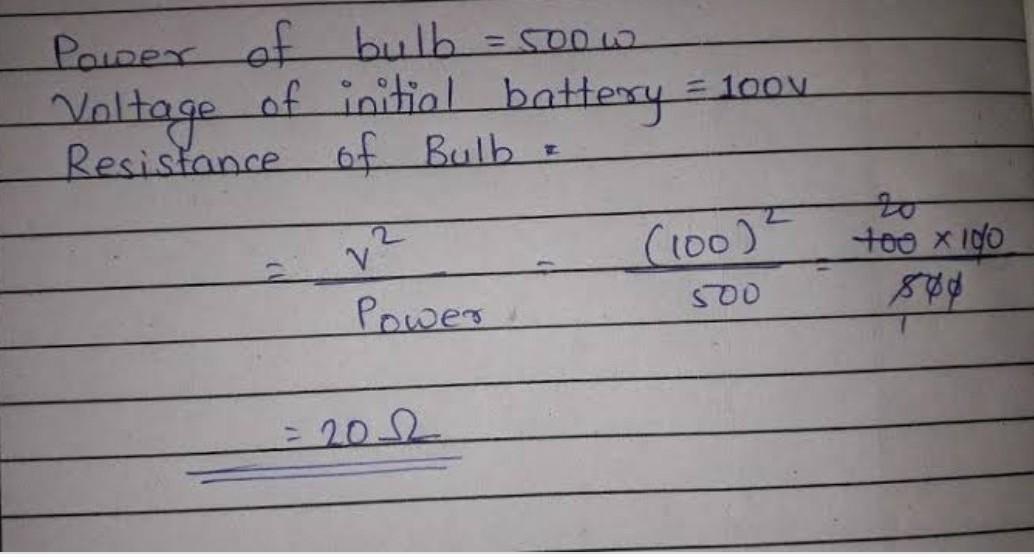 Power of bulb = 500w
Voltage of initial battery = 100v
Resistance of Bulb =
= v²/Power = (100)²/500 = 20 100 x 100/500 1
= 20 Ω